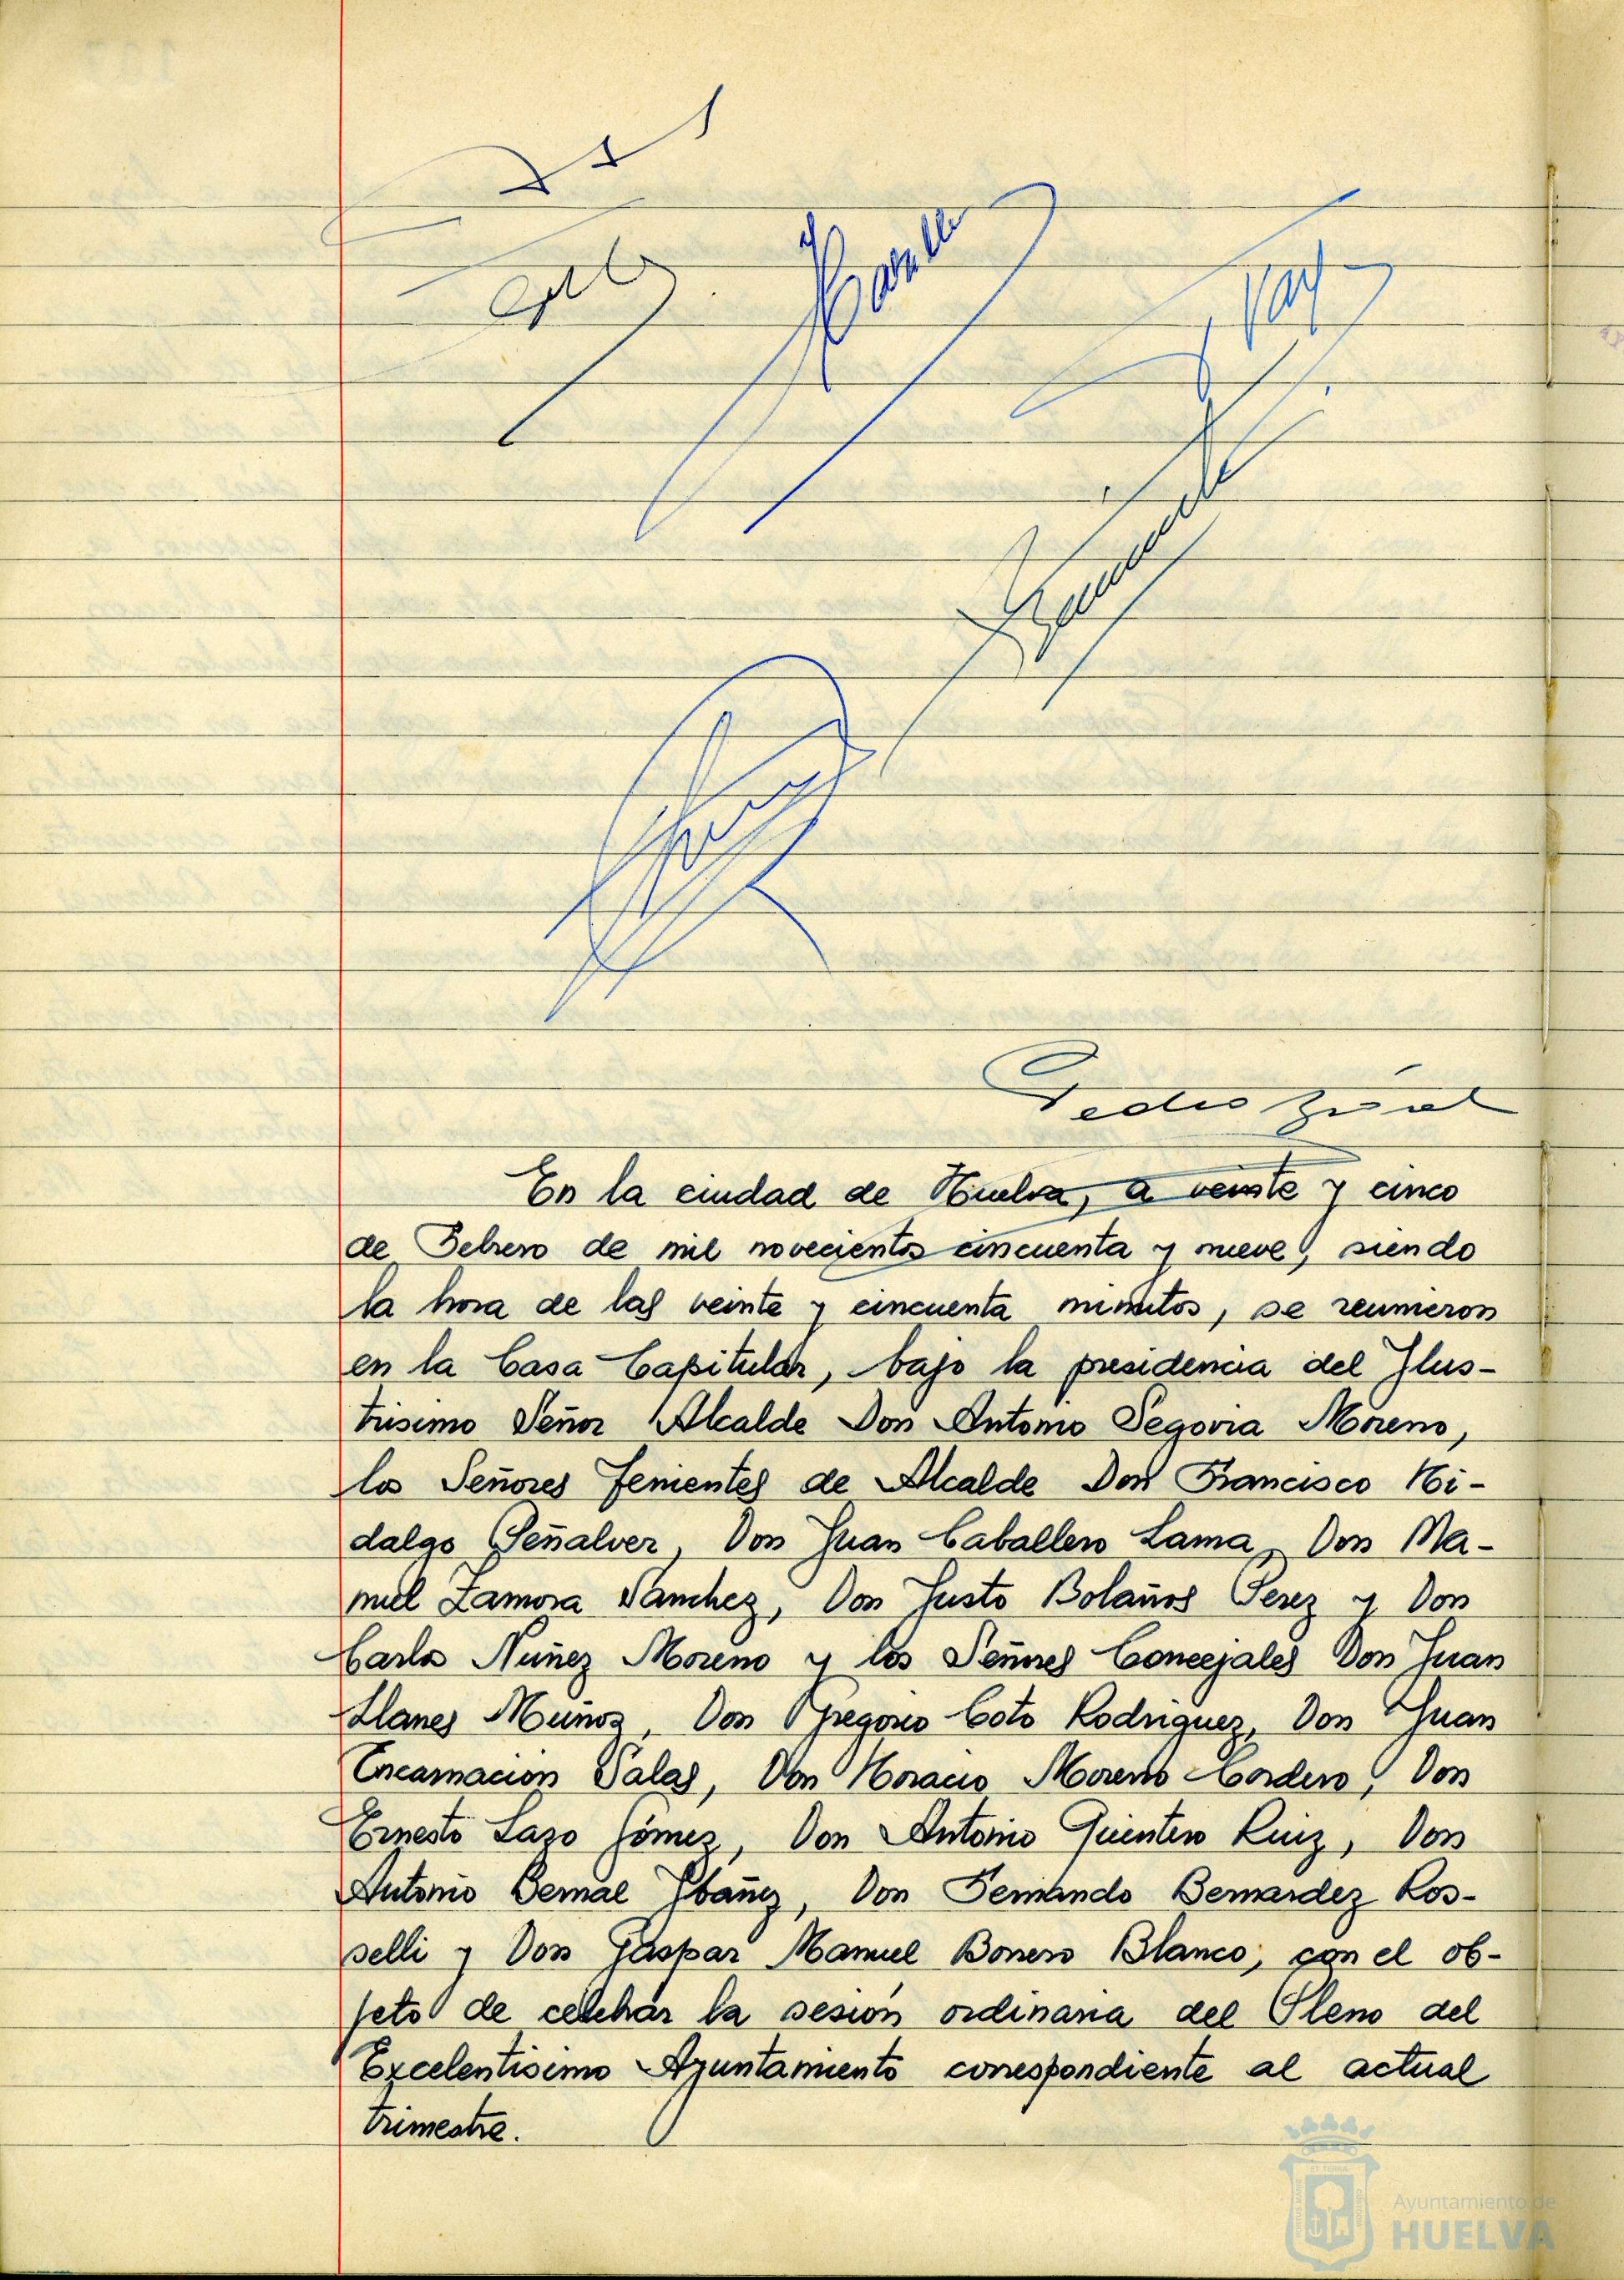 Pedro
En la ciudad de Huelva, a veinte y cinco
de Febrero de mil novecientos cincuenta y nueve, siendo
la hora de las veinte y cincuenta minutos, se reunieron
en la Casa Capitular, bajo la presidencia del Ilus-
trisimo Señor Alcalde Don Antonio Segovia Moreno,
los Señores Tenientes de Alcalde Don Francisco Hi-
dalgo Peñalver, Don Juan Caballero Lama, Don Ma-
nuel Zamora Sanchez, Don Justo Bolaños Perez y Don
Carlos Nuñez Moreno y los Señores Concejales Don Juan
Llanes Muñoz, Don Gregorio Coto Rodriguez, Don Juan
Encarnacion Salas, Don Horacio Moreno Cordero, Don
Ernesto Lazo Gómez, Don Antonio Quintero Ruiz, Don
Antonio Bernal Ybañez, Don Fernando Bernardez Ros-
selli y Don Gaspar Manuel Borrero Blanco, con el ob-
jeto de celebrar la sesión ordinaria del Pleno del
Excelentisimo Ayuntamiento correspondiente al actual
trimestre.
Ayuntamiento de
HUELVA